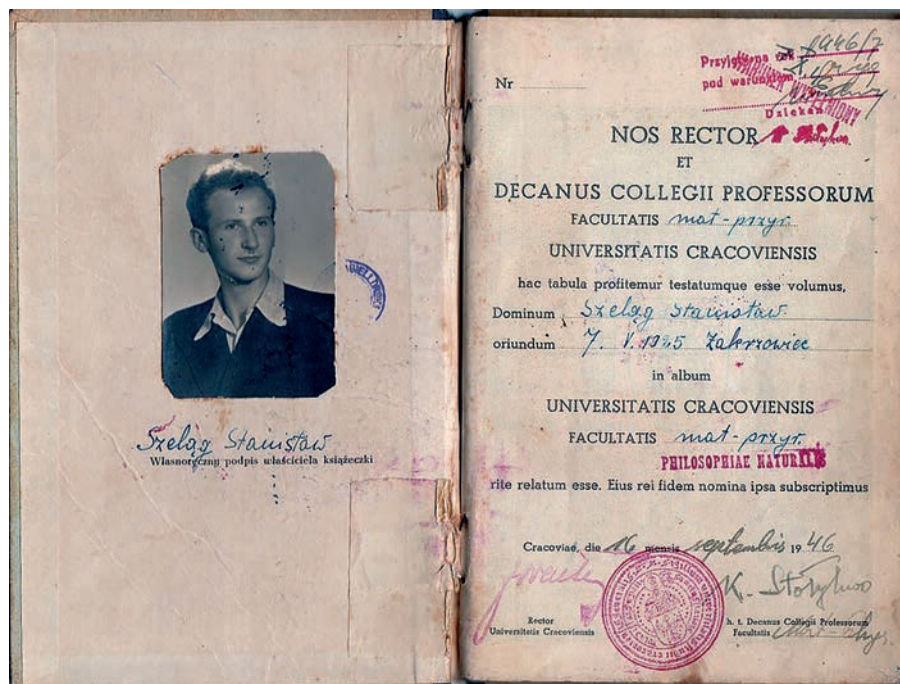 Szeląg Stanisław
Własnoręczny podpis właściciela książeczki
1946/7
Przyjęt na rok
pod warunkiem
WARUNEK WYPEŁNIONY
Dziekan
Nr
NOS RECTOR
ET
DECANUS COLLEGII PROFESSORUM
FACULTATIS mat-przyr.
UNIVERSITATIS CRACOVIENSIS
hac tabula profitemur testatumque esse volumus,
Dominum Szeląg Stanisław
oriundum 7. V. Zakrzowiec
in album
UNIVERSITATIS CRACOVIENSIS
FACULTATIS mat-przyr.
PHILOSOPHIAE NATURALIS
rite relatum esse. Eius rei fidem nomina ipsa subscriptimus
Cracoviae, die 16 mensis septembris 1946
K. Stołyhwo
Rector
Universitatis Cracoviensis
h. t. Decanus Collegii Professorum
Facultatis